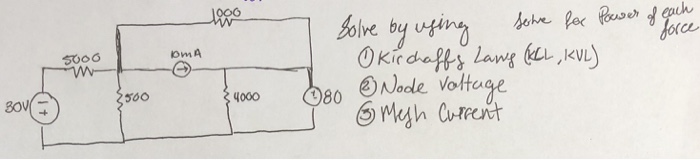 1000
5000
10mA
30V
500
4000
80
Solve by using
① Kirchaffs Laws (KCL, KVL)
② Node Voltage
③ Mesh Current
Solve for Power of each
force